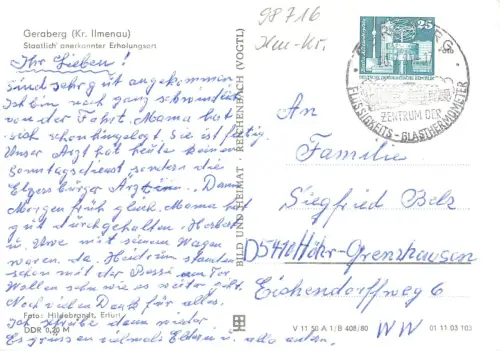 Geraberg (Kr. Ilmenau)
Staatlich anerkannter Erholungsort
98716
Ilm-Kr.
25
ZENTRUM DER
FLÜSSIGKEITS-GLASTHERMOMETER
Ihr Lieben!
Sind sehr gut angekommen.
Ich bin noch ganz schwindlich
von der Fahrt. Mama hat
sich schon hingelegt. Sie ist fertig.
Unser Arzt hat heute keinen
Sonntagsdienst sondern die
Elgersburger Ärztin. Dann
Morgen früh gleich. Mama hat
gut durchgehalten. Herbert
u. Uwe mit seinem Wagen
waren da. Heidrun staunte
schon mit der
Wollen sehn wie es weiter geht.
Noch vielen Dank für alles.
Ich schreibe dann wieder
Es grüssen vielmals Eltern u. alle anderen.
Foto: Hildebrandt, Erfurt
DDR 0,20 M
BILD UND HEIMAT · REICHENBACH (VOGTL)
An
Familie
Siegfried Belz
D5410 Höhr-Grenzhausen
Eichendorffweg 6
WW
V 11 50 A 1/B 408/80
01 11 03 103